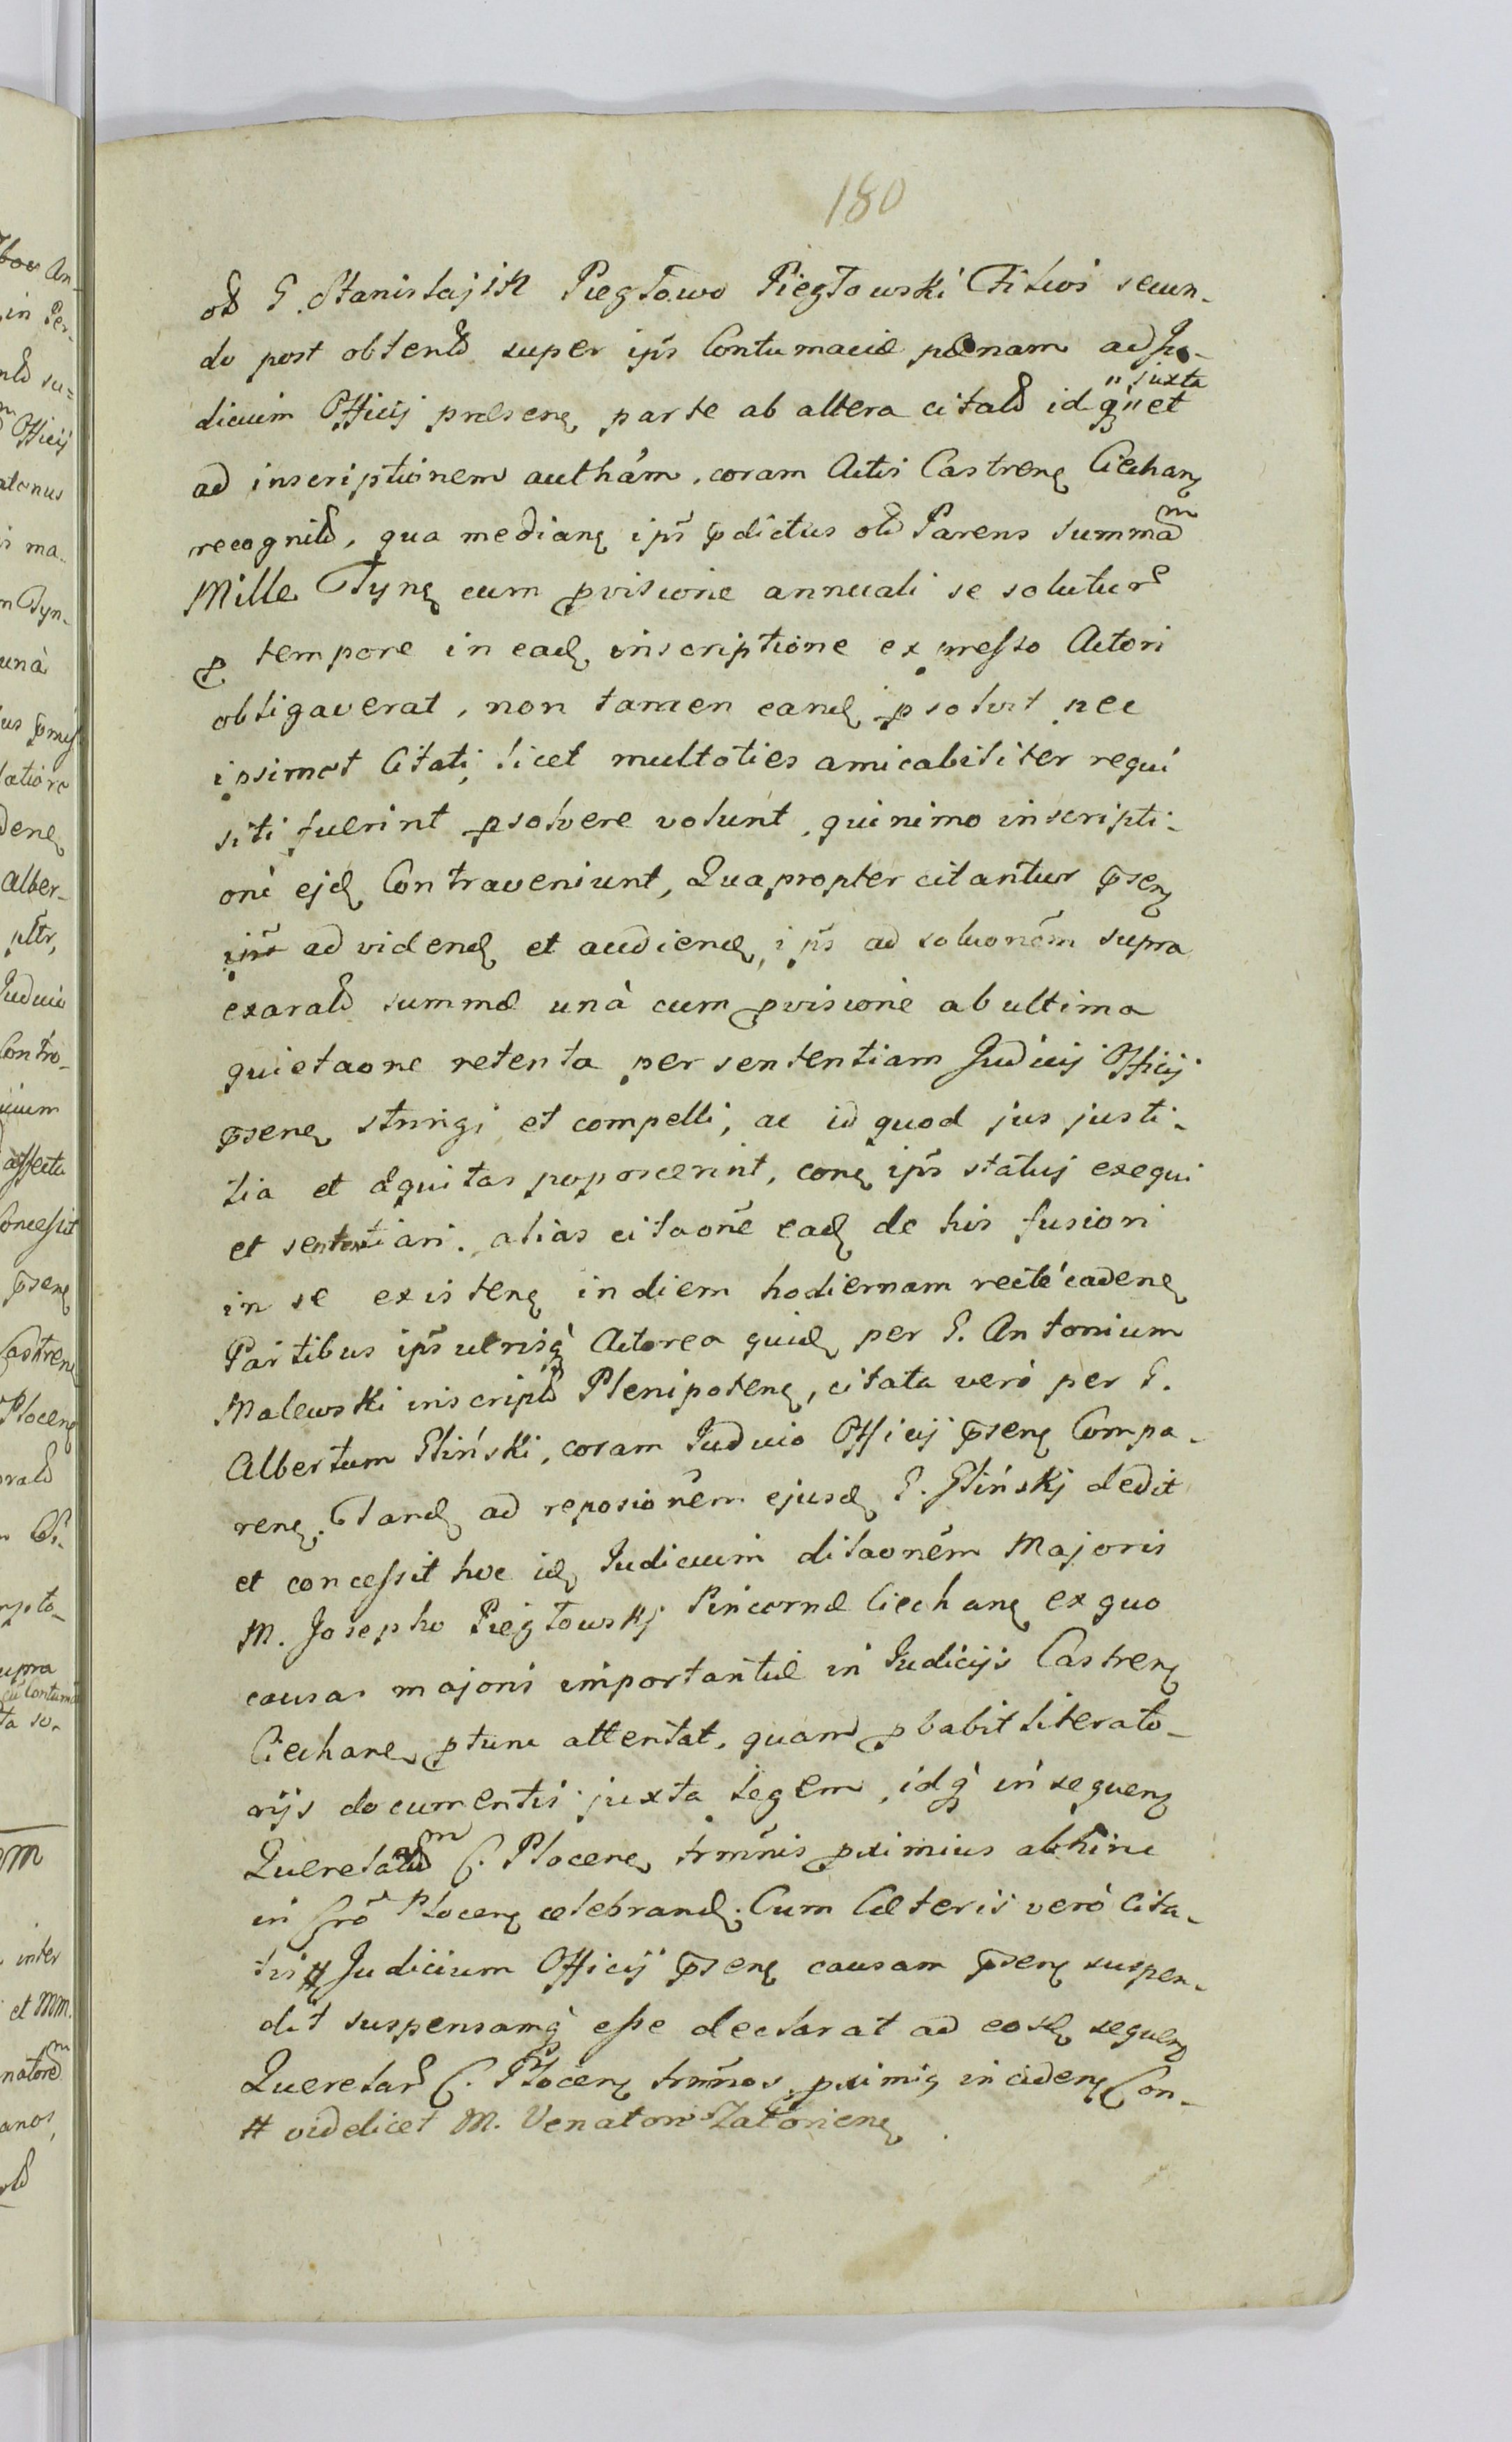 180
olb G. Stanislaj in Piegłowo Piegłowski Filios secun-
do post obtentā super ips Contumaciæ pœnam ad Ju-
dicium Officij præsenę parte ab altera citatā idq̃ " juxta " et
ad inscriptionem authām, coram Actis Castrenę Ciechanę
recognitā, qua medianę ips p̄dictus olb Parens summām
Mille Tynę cum pvisione annuali se soluturū
p tempore in eadę inscriptione expresso Actori
obligaverat, non tamen eandę psolvit nec
ipsimet Citati, licet multoties amicabiliter requi
siti fuerint psolvere volunt, quinimo inscripti-
oni ejdę Contraveniunt, Quapropter citantur p̄senę
ips ad videndę et audiendę, ips ad soluonem supra
exaratæ summæ unà cum pvisione ab ultima
quietaone retenta per sententiam Judicij Officij
p̄senę stringi et compelli, ac id quod jus justi-
tia et æquitas poposcerint, conę ips statuj exequi
et sententiari. alias citaone eadę de his fusiori
in se existenę in diem hodiernam rectè cadenę
Partibus ips utrisq̃ Actorea quidę per G. Antonium
Malewski inscriptū Plenipotenę, citata verò per G.
Albertum Gliński, coram Judicio Officij p̄senę Compa-
renę. Tandę ad reposionem ejusdę G. Glińskj dedit
et concessit hoc idę Judicium dilaonem Majoris
M. Josepho Piegłowskj Pincernæ Ciechanę ex quo
causas majoris importantiæ in Judicijs Castrenę
Ciechanę ptunc attentat, quam pbabit literato-
rijs documentis juxta legem, idq̃ in sequenę
Querelarum C. Plocenę trmnis pximius abhinc
in Cro Plocenę celebrandę. Cum Cæteris verò Cita-
tis # Judicium Officij p̄senę causam p̄senę suspen-
dit suspensamq̃ esse declarat ad eosdę sequenę
Querelarū C. Plocenę trmnos pximię incidenę Con-
# videlicet M. Venatori Zatorienę